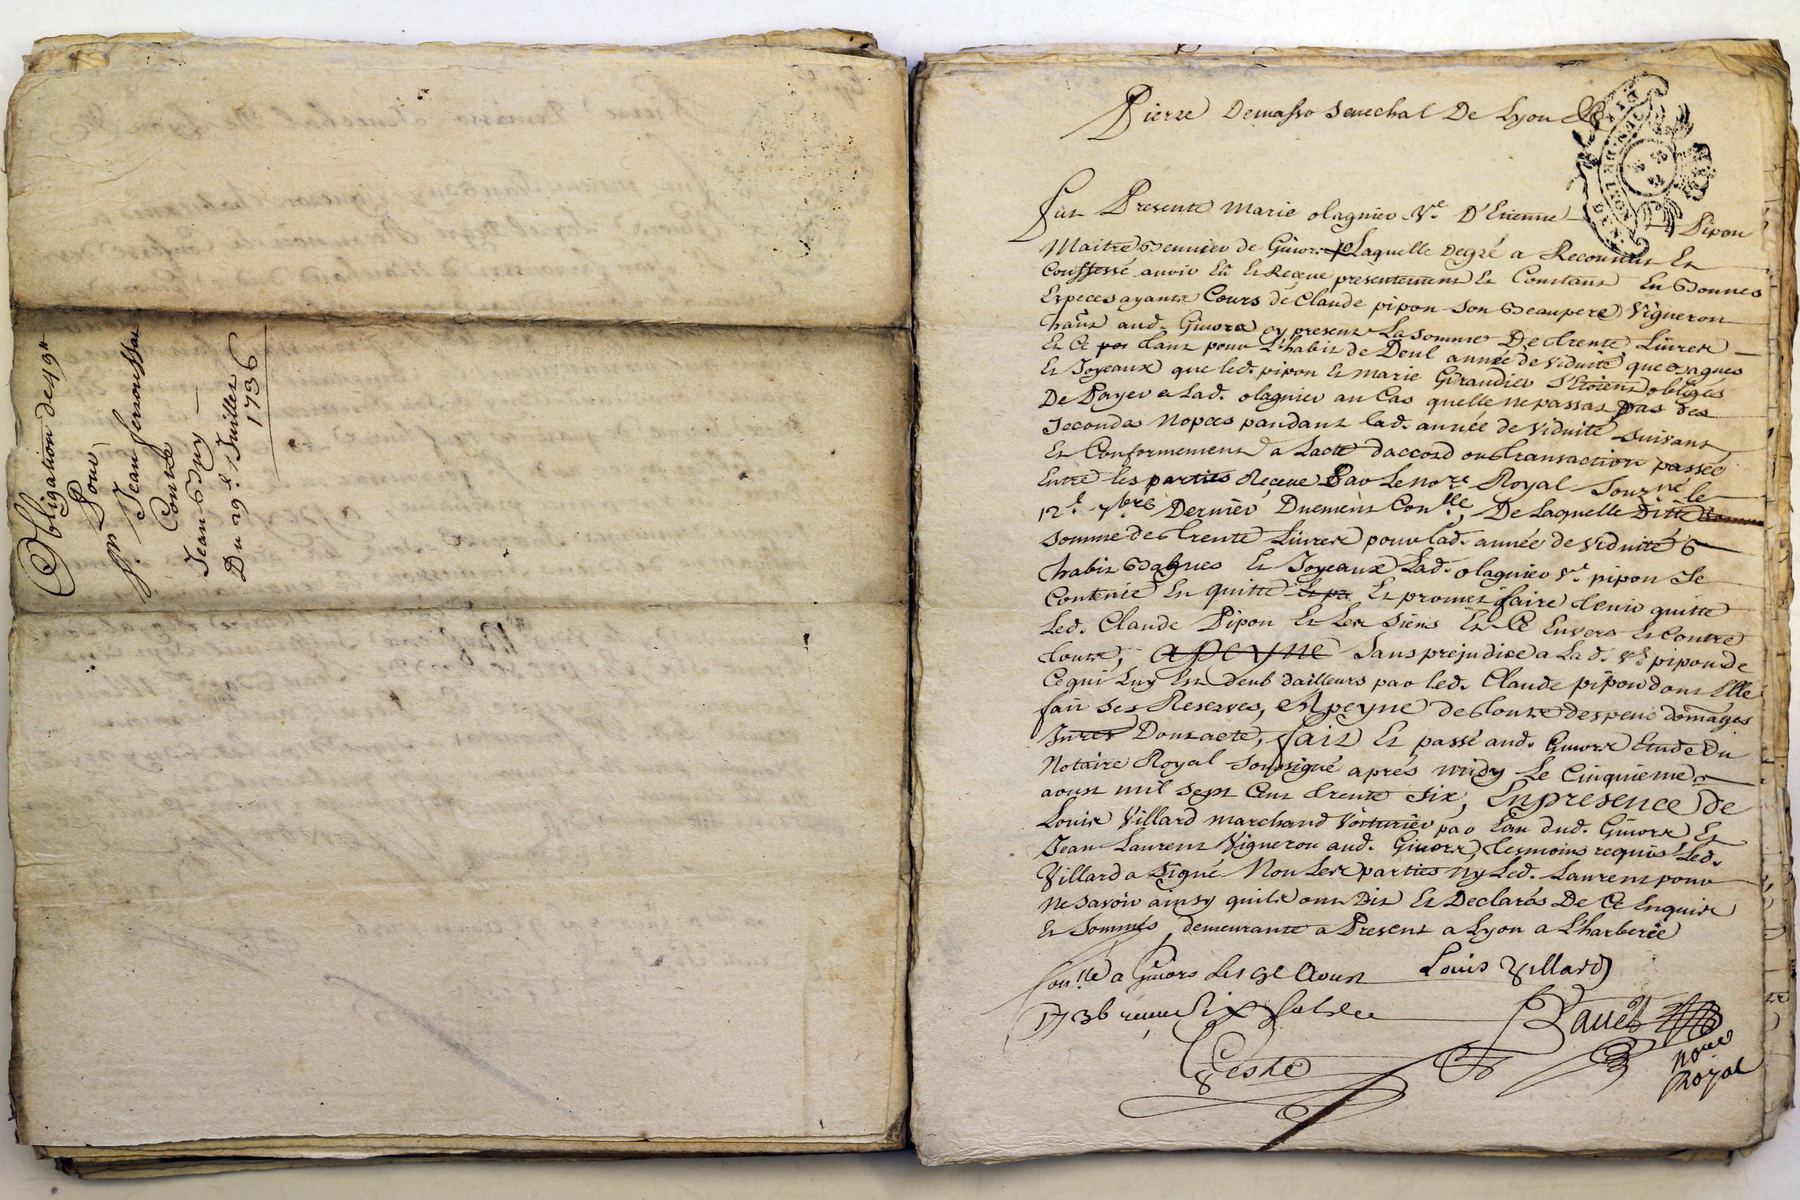 Obligation de 49#
Pour
Sr. Jean
Contre
Jean Guy
Du 29e. Juillet
1736
Pierre Demasso Senechal De Lyon &c
Fut Presente Marie olagnier Ve. D'Etienne Pipon
Maitre de Givors Laquelle Degré a Reconnut Et
Confessé avoir Eü Et Reçeue presentement Et Contant En Bonnes
Especes ayants Cours de Claude pipon son Beaupere Vigneron
haût aud. Givors cy present La somme De trente Livres
Et Ce tant pour L'habit de Deul année de Viduité que Bagues
Et Joyeaux que led. pipon Et Marie Girandier S'Etoient obligés
De Payer a Lad. olagnier au Cas quelle ne passat Pas des
Secondes Nopces pandant lad. année de Viduité suivant
Et Conformement a Lacte daccord ou transaction passée
Entre les parties Receue Par Le nore. Royal Sousné. le
12e. 7bre Dernier Duement Conlle, De Laquelle Ditte somme
somme de trente Livres pour lad. année de viduité
habit Bagues Et Joyeaux Lad. olagnier Ve. pipon Se
Contente En quitte Et pa Et promet faire tenir quitte
Led. Claude Pipon Et Les Siens Et Ce Envers Et Contre
tous, apeyne Sans prejudice a La d. Ve. pipon de
Ce qui Luy Est deub dailleurs par led. Claude pipon dont Elle
fait Ses Reserves, A peyne de toutts despens domages
Intres Dont acte, fait Et passé aud. Givors Etude du
Notaire Royal Soussigné aprés midy Le Cinquieme
aoust mil sept Cent trente six, En presence de
Louis Villard marchand Voiturier par Eau dud. Givors Et
Jean Laurent Vigneron aud. Givors, temoins requis Led.
Villard a Signé Non Les parties Ny Led. Laurent pour
Ne Savoir ainsy quils ont Dit Et Declarés De Ce Enquis
Et Sommés, demeurante a Present a Lyon a L'harberie
Conlle a Givors Le 9e Aoust Louis Villard
1736 receu Six sols
Teste
Royal